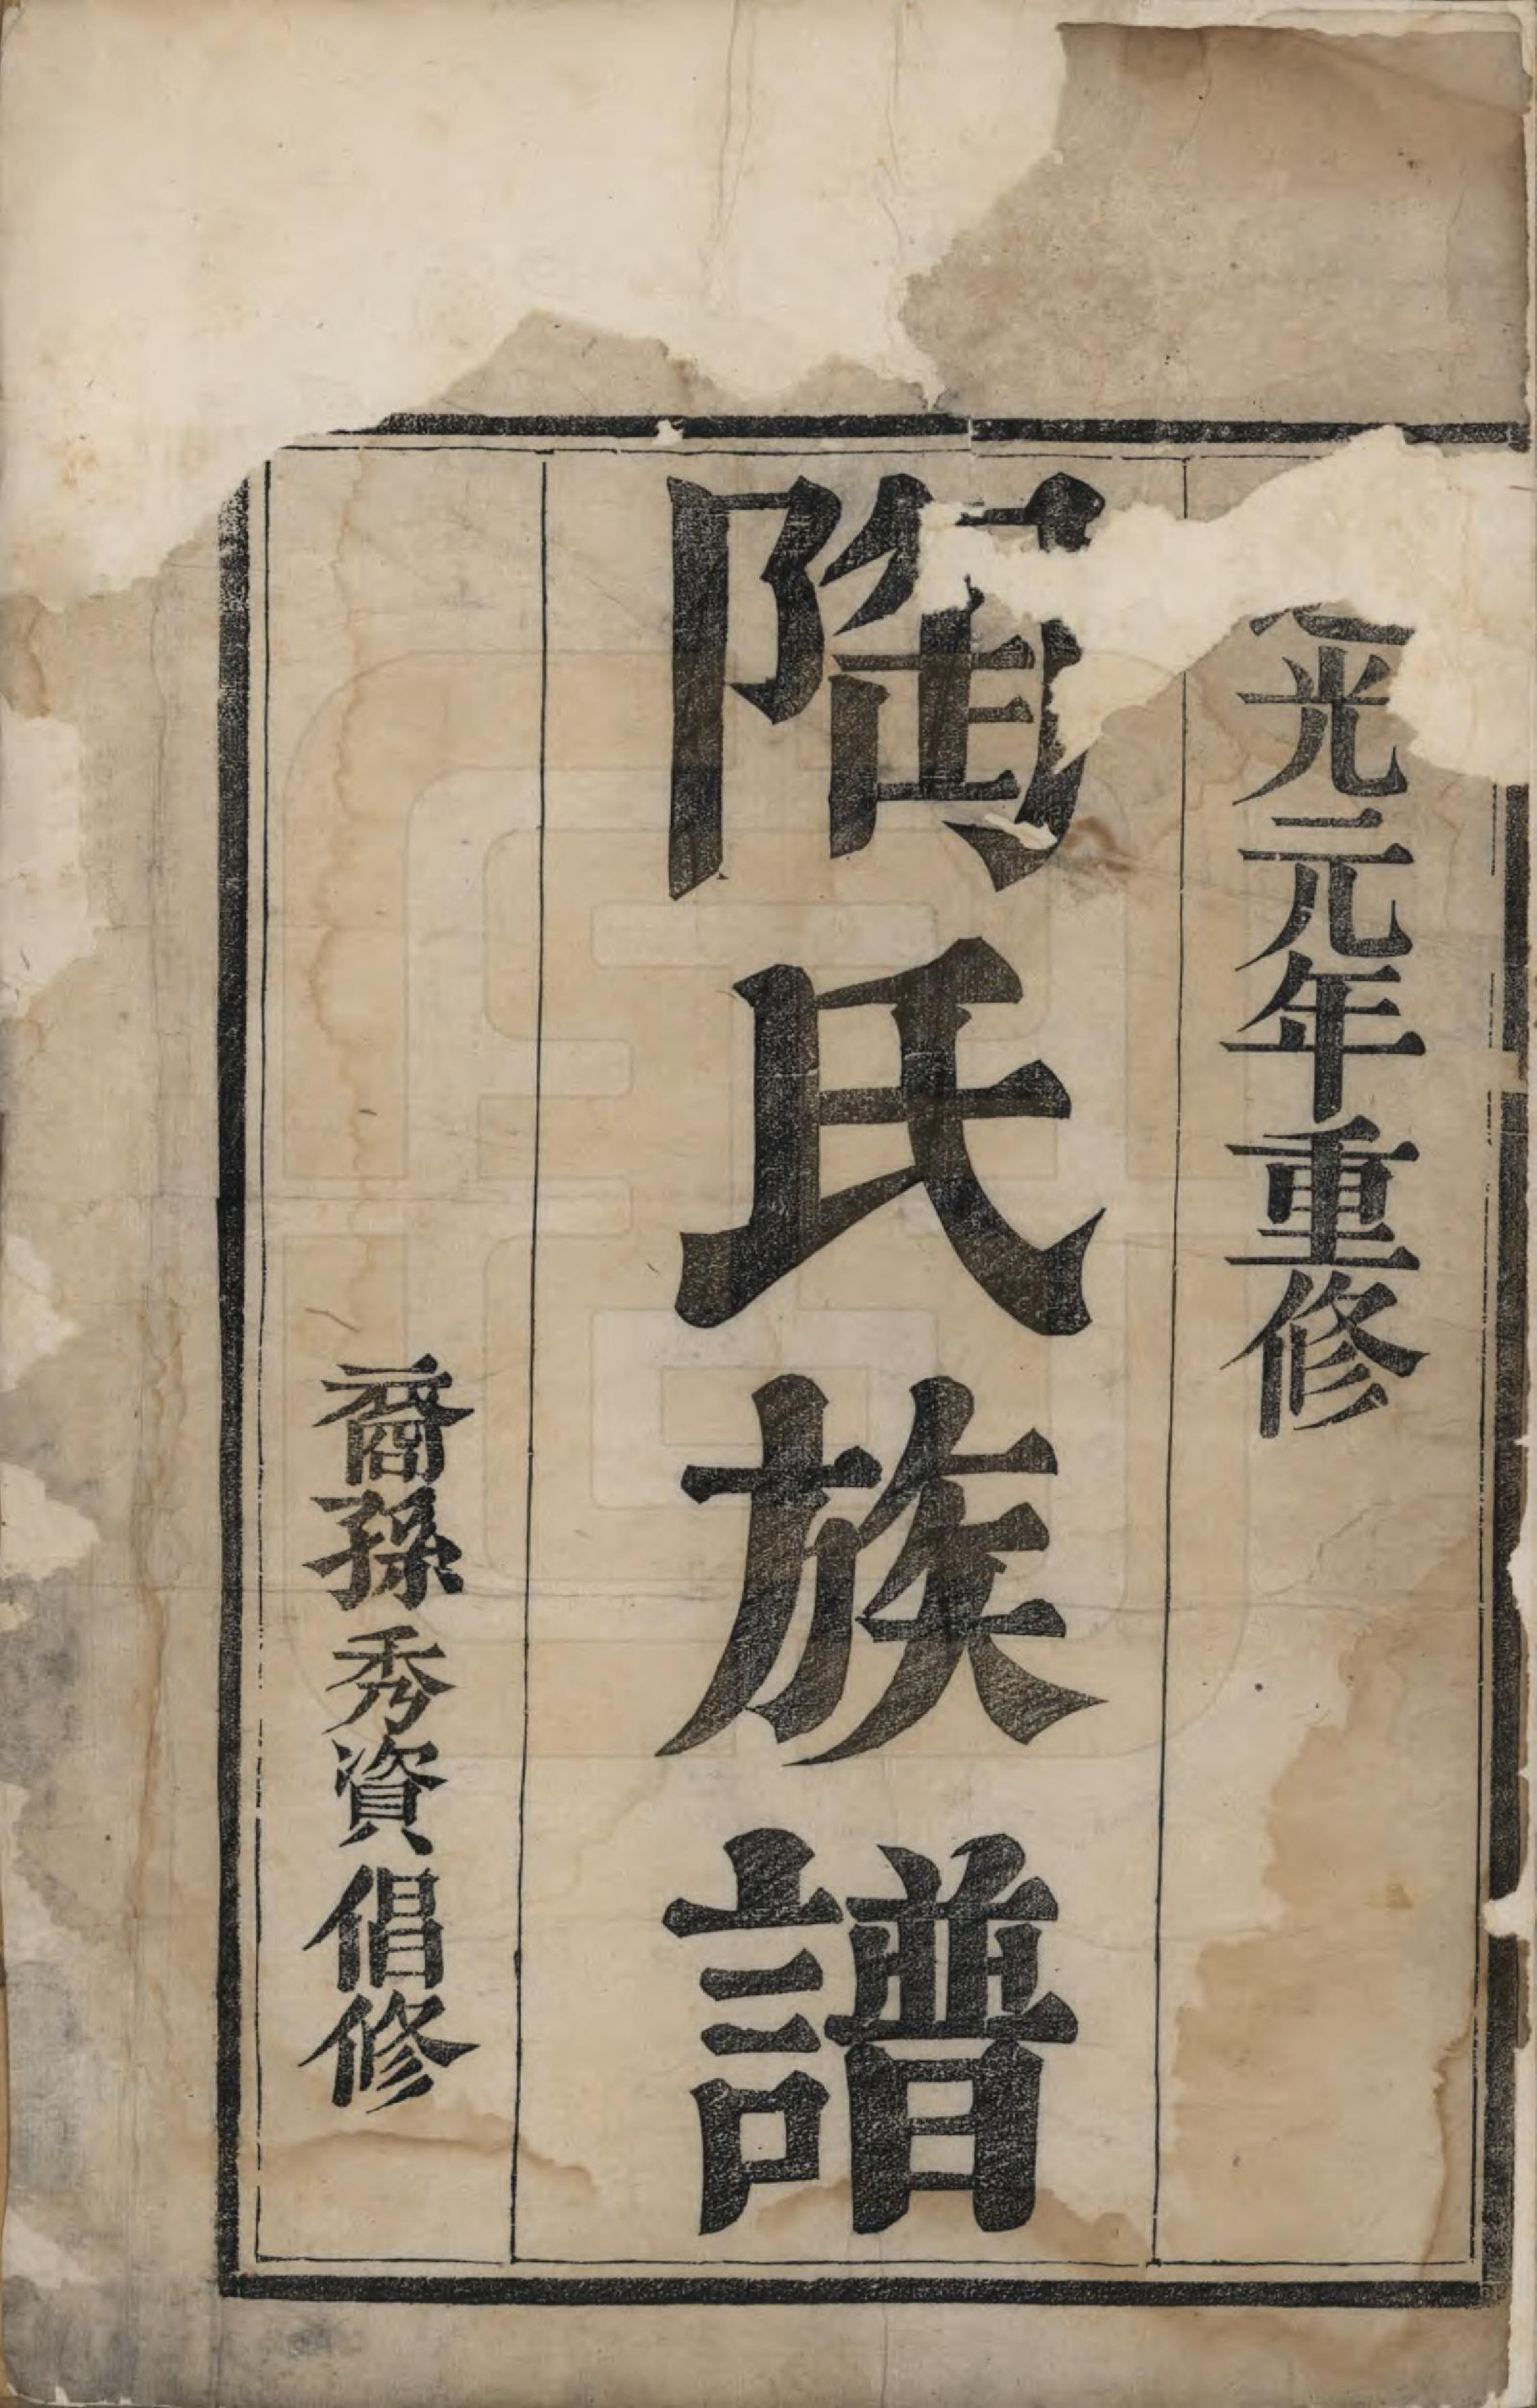 光元年重修
陶氏族譜
裔孫秀資倡修